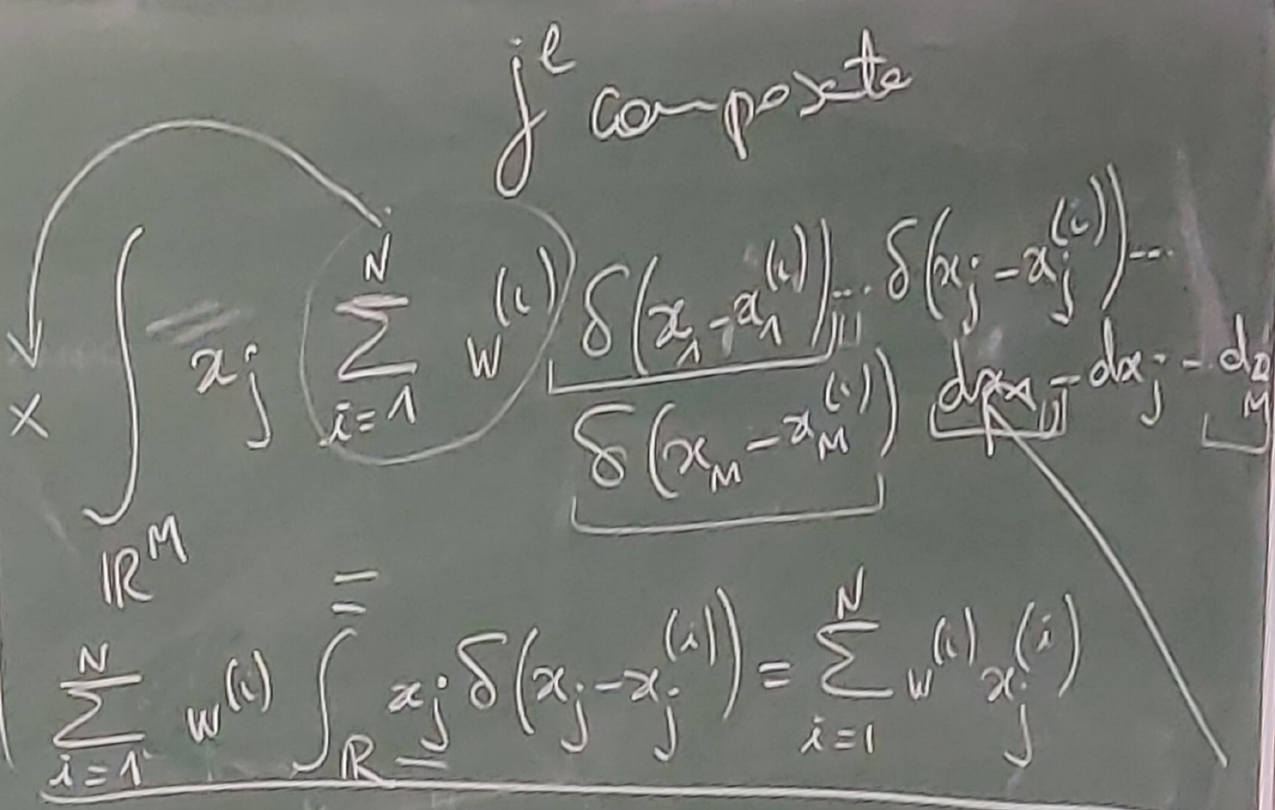 jᵉ composante
∫_{ℝ^M} x_j ∑_{i=1}^{N} w^{(i)} δ(x_1 - x_1^{(i)}) ... δ(x_j - x_j^{(i)}) ...
δ(x_M - x_M^{(i)}) dx_1 - dx_j - dx_M
x
=
∑_{i=1}^{N} w^{(i)} ∫_ℝ x_j δ(x_j - x_j^{(i)}) = ∑_{i=1}^{N} w^{(i)} x_j^{(i)}